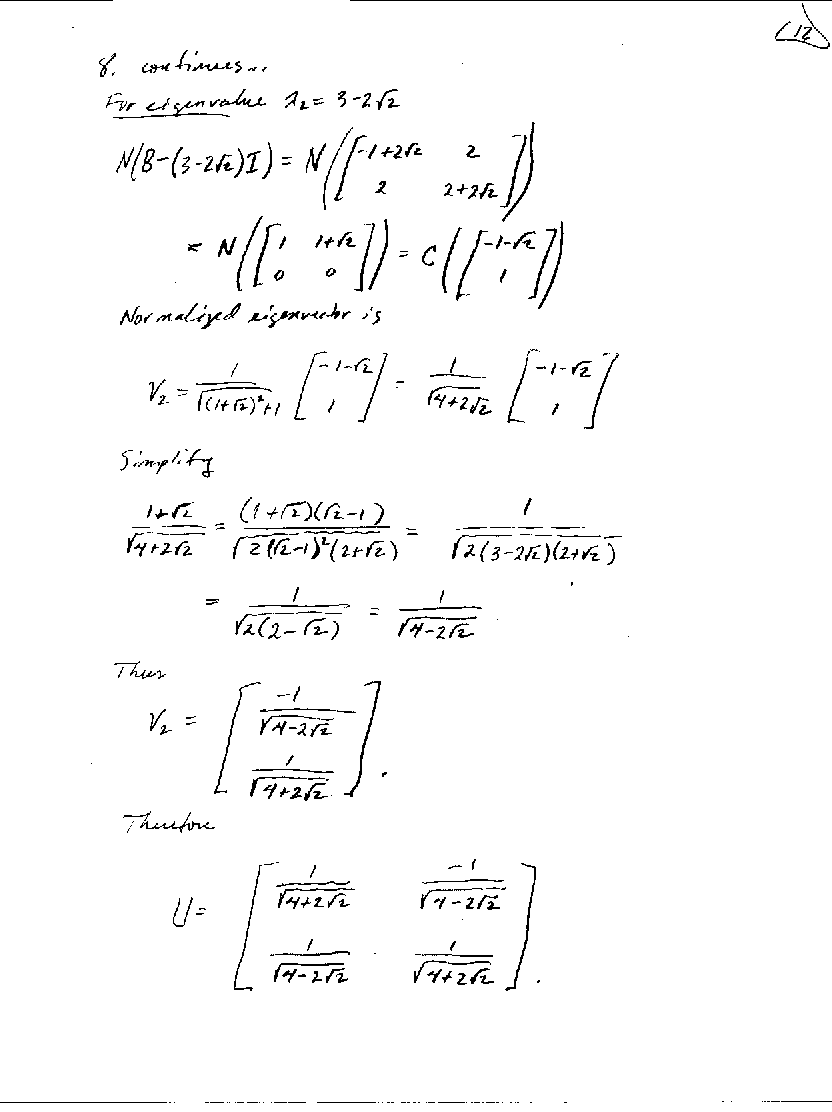 (12)
8. continues...
For eigenvalue λ₂ = 3-2√2
N(B-(3-2√2)I) = N([-1+2√2 2; 2 2+2√2])
= N([1 1+√2; 0 0]) = C([-1-√2; 1])
Normalized eigenvector is
V₂ = 1/√((1+√2)²+1) [-1-√2; 1] = 1/√(4+2√2) [-1-√2; 1]
Simplify
(1+√2)/√(4+2√2) = (1+√2)(√2-1)/√(2(√2-1)²(2+√2)) = 1/√(2(3-2√2)(2+√2))
= 1/√(2(2-√2)) = 1/√(4-2√2)
Thus
V₂ = [-1/√(4-2√2); 1/√(4+2√2)].
Therefore
U = [1/√(4+2√2) -1/√(4-2√2); 1/√(4-2√2) 1/√(4+2√2)].